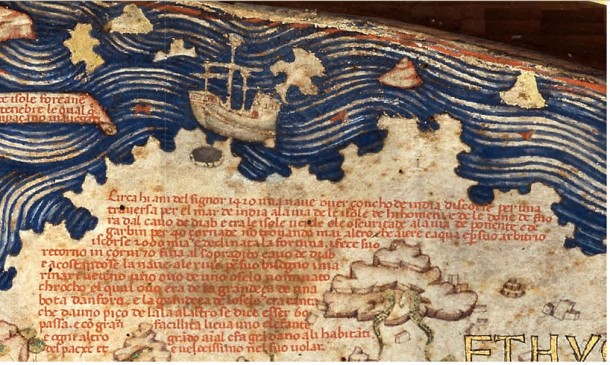 te isole foreane
tenebre le qual q̄
Circa hi ani del signor 1420 una naue ouer çoncho de india discorse per una
trauersa per el mar de india a la uia de le isole de hi homeni e de le done de fuo
ra dal cauo de diab e tra le isole uerde e le oscuritade a la uia de ponente e de
garbin per 40 çornade nō trouando mai altro che aiere e aqua e p suo arbitrio
iscorse 2000 mia e declinata la fortuna i fece suo
retorno in çorni 70 fina al sopradito cauo de diab
e acostandose la naue a le riue p suo bisogno i ma
rinari uedeno uno ouo de uno oselo nominato
chrocho el qual ouo era de la grandeça de una
bota d anfora e la grandeça de loselo era tanta
che da uno piço de lala a laltro se dice esser 60
passa e cō gran facilita lieua uno elefante
e ogni altro grādo aīal e fa grā dano a li habitāti
del paexe et e uelocissimo nel suo uolar
ETHYO